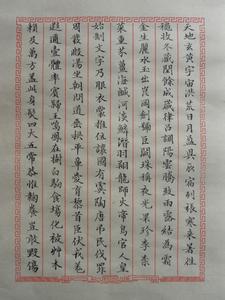 天地玄黃宇宙洪荒日月盈昃辰宿列張寒來暑往
秋收冬藏閏餘成歲律呂調陽雲騰致雨露結為霜
金生麗水玉出崑岡劍號巨闕珠稱夜光果珍李柰
菜重芥薑海鹹河淡鱗潛羽翔龍師火帝鳥官人皇
始制文字乃服衣裳推位讓國有虞陶唐弔民伐罪
周發殷湯坐朝問道垂拱平章愛育黎首臣伏戎羌
遐邇壹體率賓歸王鳴鳳在樹白駒食場化被草木
賴及萬方蓋此身髮四大五常恭惟鞠養豈敢毀傷